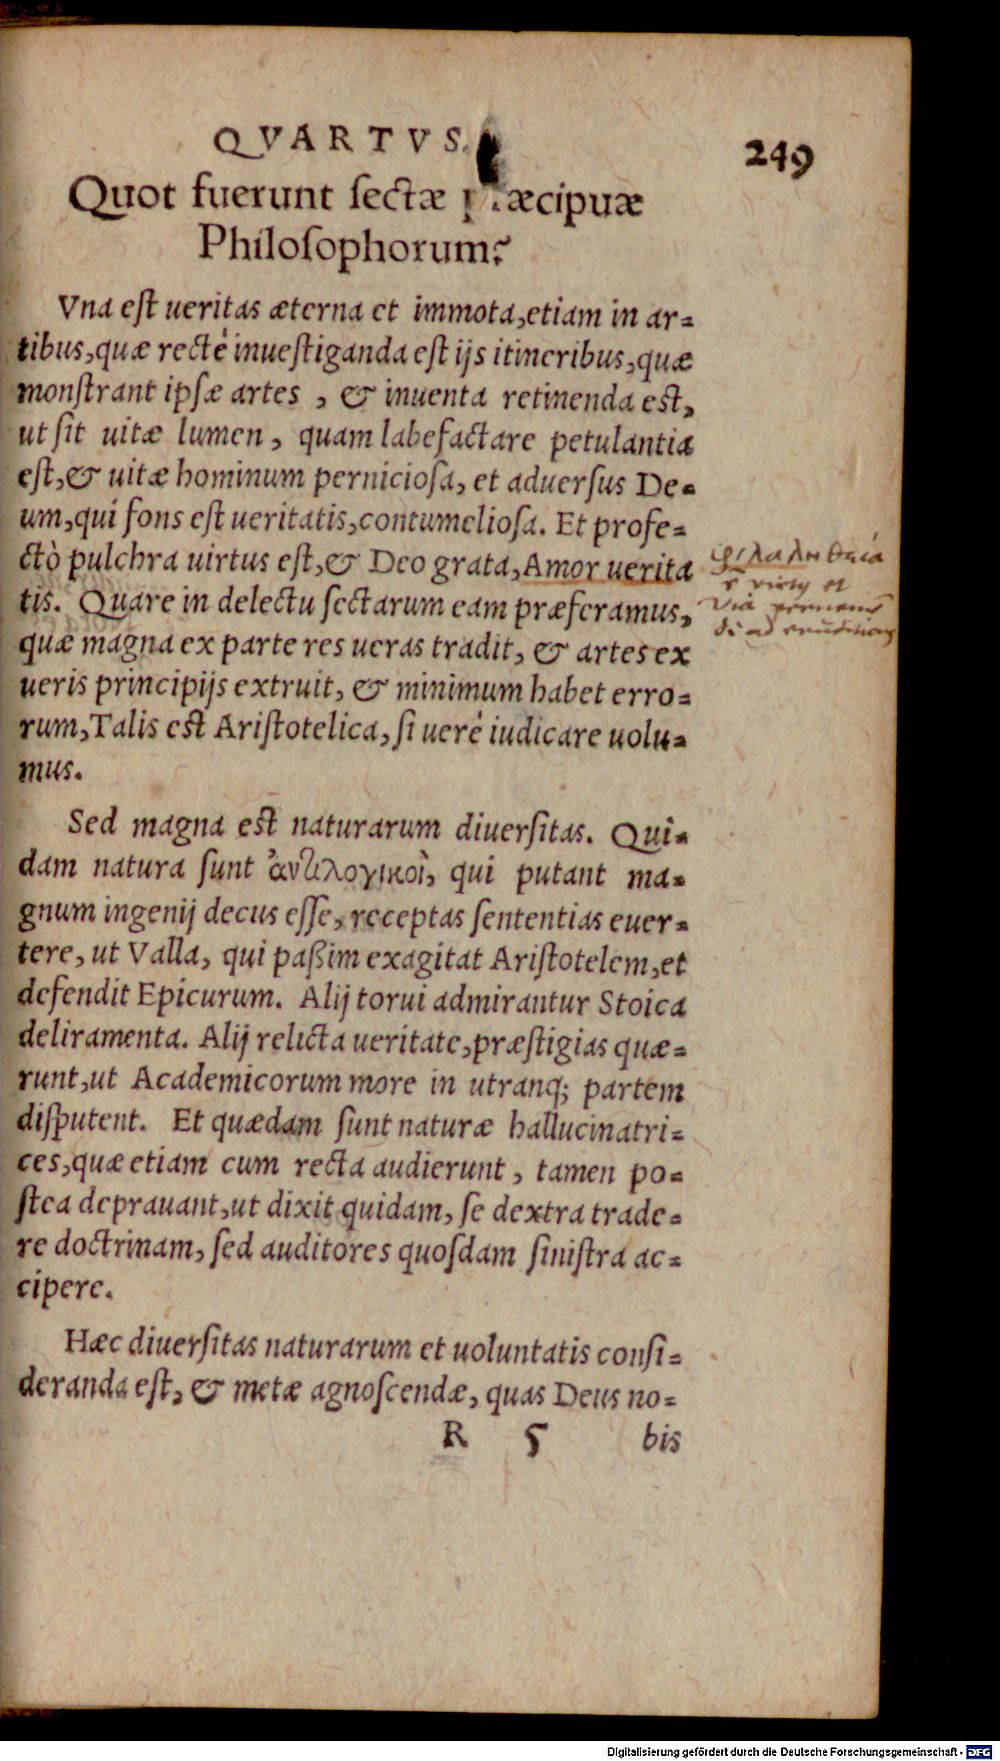 QVARTVS.
249
Quot fuerunt ſectæ æcipuæ
Philoſophorum?
Vna eſt ueritas æterna et immota, etiam in ar-
tibus, quæ rectè inueſtiganda eſt ijs itineribus, quæ
monſtrant ipſæ artes, & inuenta retinenda est,
ut ſit uitæ lumen, quam labefactare petulantia
eſt, & uitæ hominum pernicioſa, et aduerſus De-
um, qui fons eſt ueritatis, contumelioſa. Et profe-
ctò pulchra uirtus eſt, & Deo grata, Amor uerita
tis. Quare in delectu ſectarum eam præferamus,
quæ magna ex parte res ueras tradit, & artes ex
ueris principijs extruit, & minimum habet erro-
rum, Talis est Ariſtotelica, ſi uerè iudicare uolu-
mus.
Sed magna est naturarum diuerſitas. Qui-
dam natura ſunt ἀντιλογικοὶ, qui putant ma-
gnum ingenij decus eſſe, receptas ſententias euer-
tere, ut Valla, qui paßim exagitat Ariſtotelem, et
defendit Epicurum. Alij torui admirantur Stoica
deliramenta. Alij relicta ueritate, præſtigias quæ-
runt, ut Academicorum more in utranq; partem
diſputent. Et quædam ſunt naturæ hallucinatri-
ces, quæ etiam cum recta audierunt, tamen po-
ſtea deprauant, ut dixit quidam, ſe dextra trade-
re doctrinam, ſed auditores quoſdam ſiniſtra ac-
cipere.
Hæc diuerſitas naturarum et uoluntatis conſi-
deranda eſt, & metæ agnoſcendæ, quas Deus no-
R 5 bis
φιλαληθεία
et
via
ad
Digitalisierung gefördert durch die Deutsche Forschungsgemeinschaft - DFG